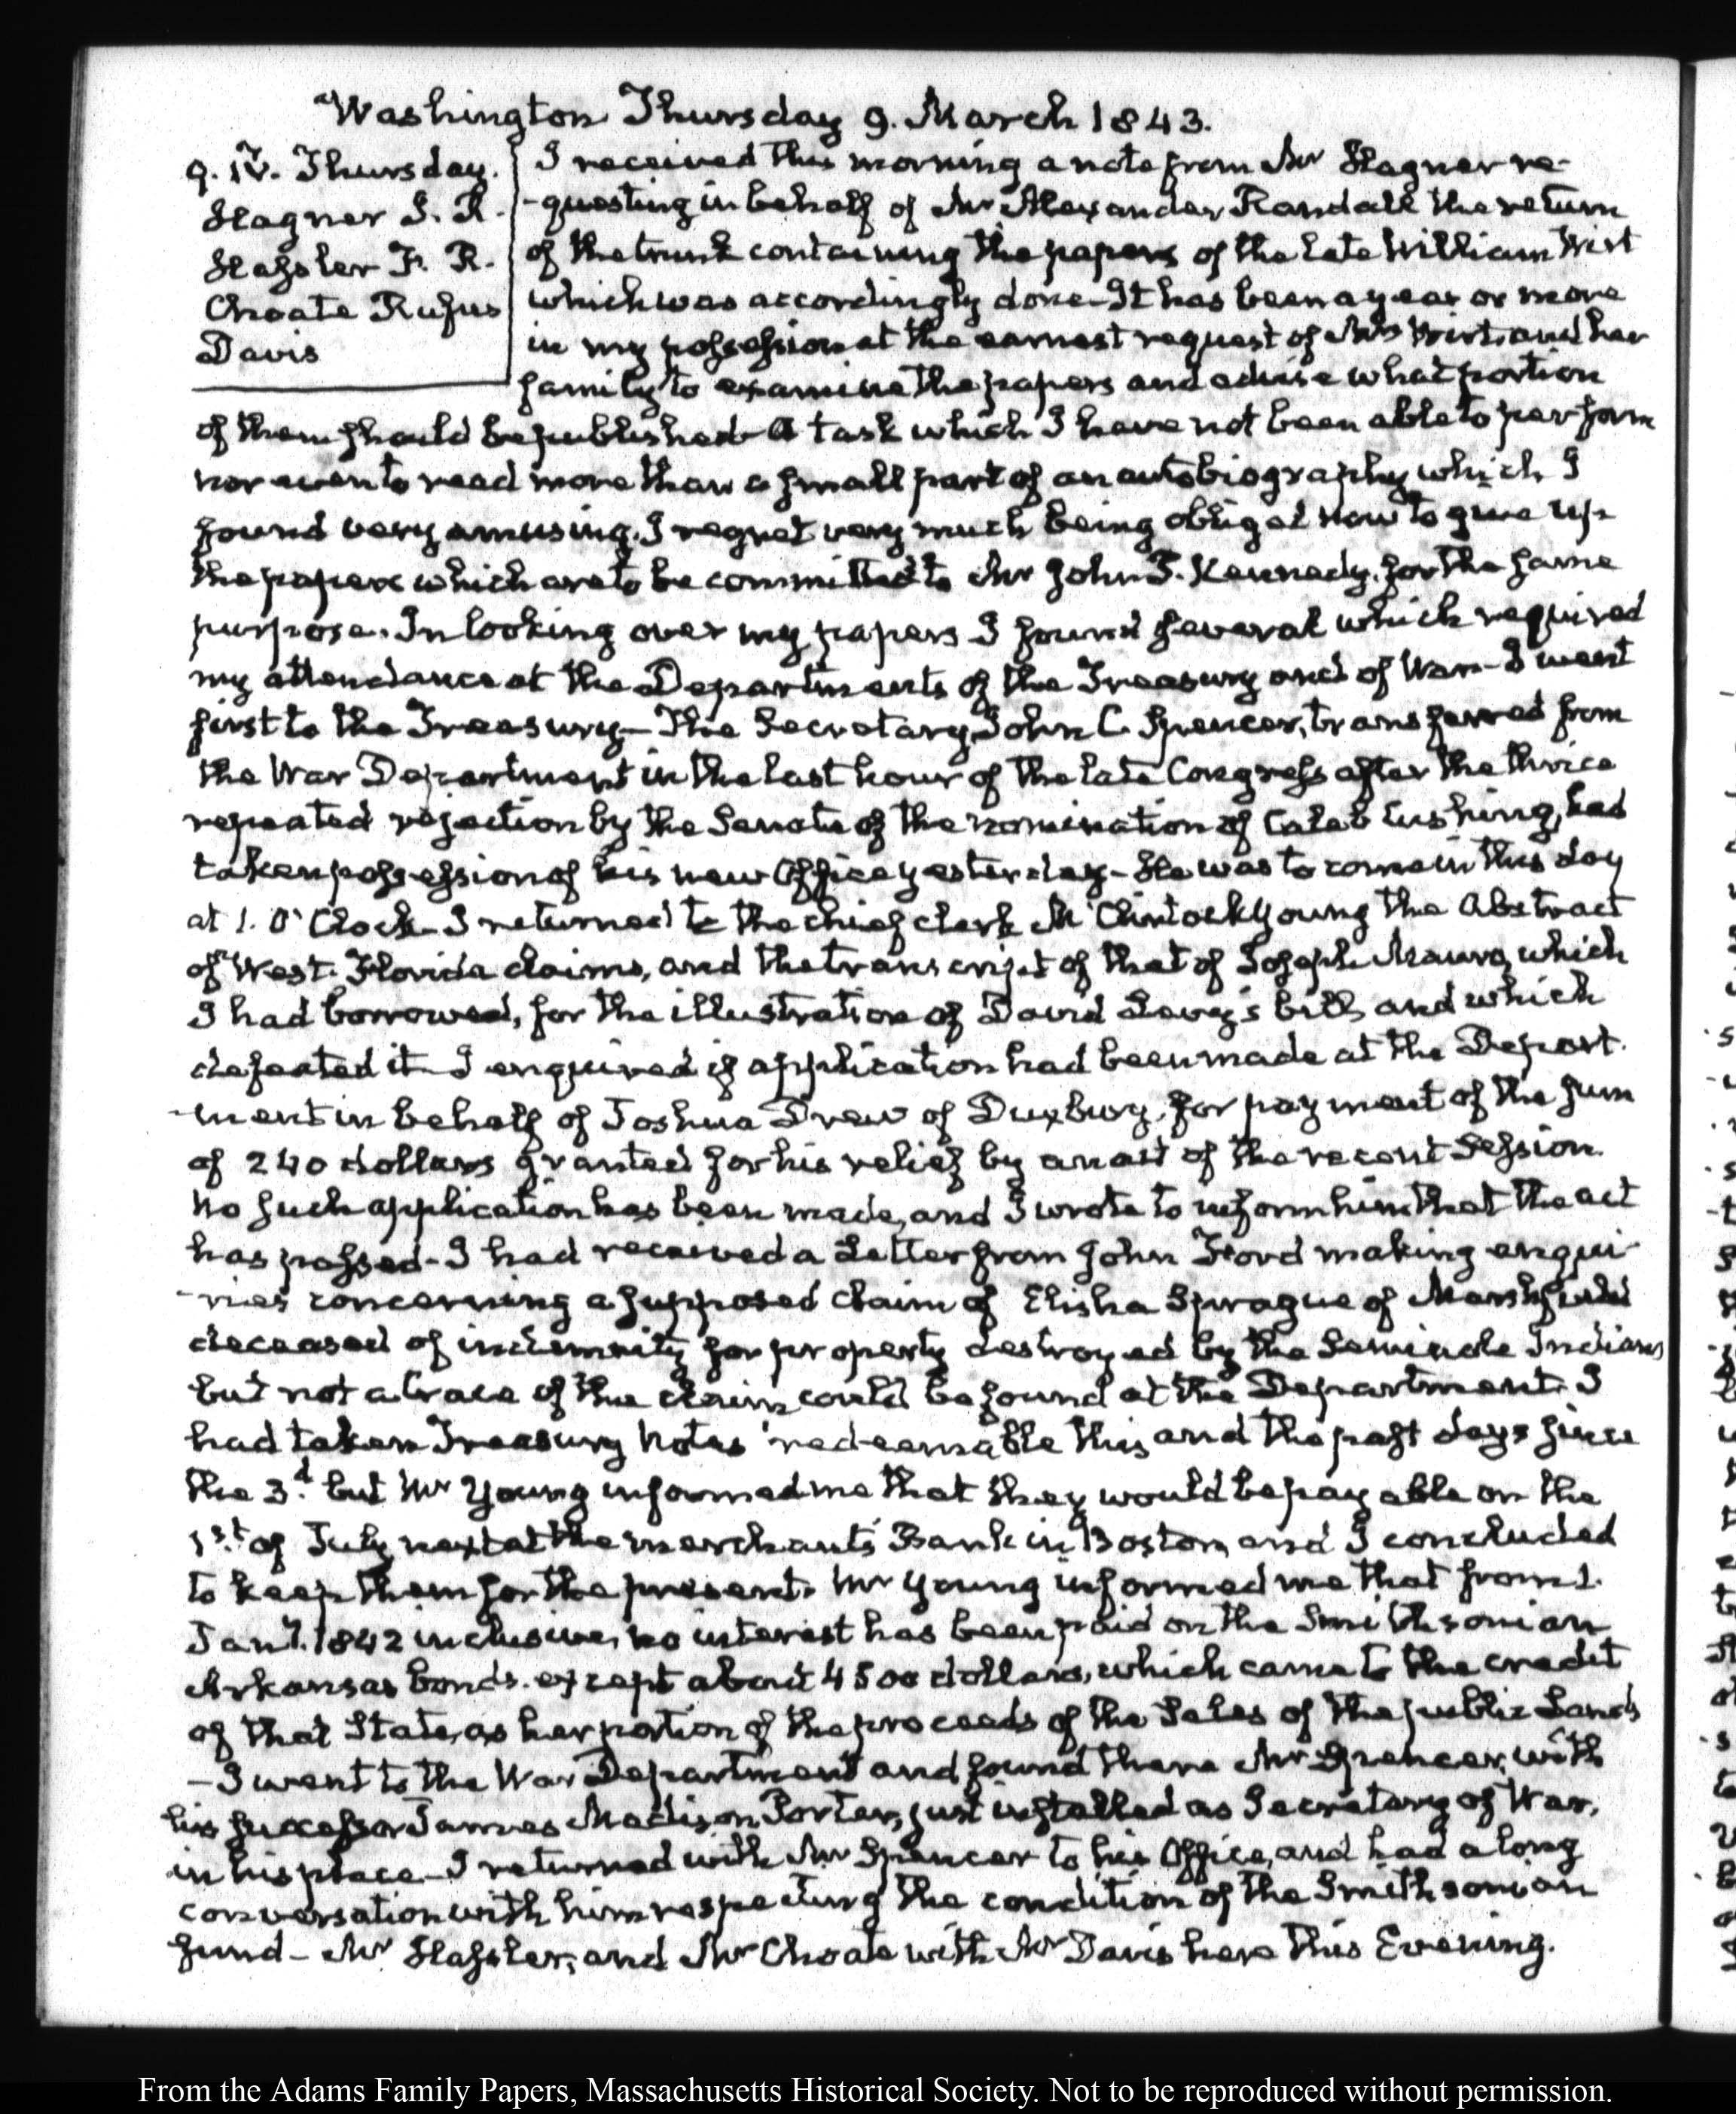 Washington Thursday 9. March 1843.
9. IV. Thursday.
Hagner P. R.
Hassler F. R.
Choate Rufus
Davis
I received this morning a note from Mr Hagner re-
-questing in behalf of Mr Alexander Randall the return
of the trunk containing the papers of the late William Wirt
which was accordingly done—It has been a year or more
in my possession at the earnest request of Mrs Wirt and her
family to examine the papers and advise what portion
of them should be published—a task which I have not been able to perform
nor even to read more than a small part of an autobiography which I
found very amusing. I regret very much being obliged now to give up
the papers which are to be committed to Mr John P. Kennedy. for the same
purpose. In looking over my papers I found several which required
my attendance at the Departments of the Treasury and of War—I went
first to the Treasury—The Secretary John C. Spencer, transferred from
the War Department in the last hour of the late Congress after the thrice
repeated rejection by the Senate of the nomination of Caleb Cushing, had
taken possession of his new Office yesterday—He was to come in this day
at 1. O'Clock—I returned to the chief clerk McClintock Young the Abstract
of West. Florida claims, and the transcript of that of Joseph Mauro, which
I had borrowed, for the illustration of David Levy's bill, and which
defeated it—I enquired if application had been made at the Depart-
-ment in behalf of Joshua Drew of Duxbury, for payment of the sum
of 240 dollars granted for his relief by an act of the recent Session.
No such application has been made, and I wrote to inform him that the act
has passed—I had received a Letter from John Ford making enqui-
-ries concerning a supposed claim of Elisha Sprague of Marshfield
deceased of indemnity for property destroyed by the Seminole Indians
but not a trace of the claim could be found at the Department. I
had taken Treasury Notes redeemable this and the past days since
the 3.d but Mr Young informed me that they would be payable on the
1.st of July next at the merchants' Bank in Boston, and I concluded
to keep them for the present. Mr Young informed me that from 1.
Jany. 1842 inclusive, no interest has been paid on the Smithsonian
Arkansas bonds. except about 4500 dollars, which came to the credit
of that State, as her portion of the proceeds of the Sales of the public Lands
—I went to the War Department and found there Mr Spencer, with
his successor James Madison Porter, just installed as Secretary of War,
in his place—I returned with Mr Spencer to his Office, and had a long
conversation with him respecting the condition of the Smithsonian
fund—Mr Hassler, and Mr Choate with Mr Davis here this Evening.
From the Adams Family Papers, Massachusetts Historical Society. Not to be reproduced without permission.